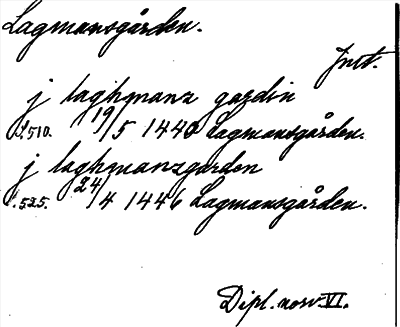 Lagmansgården.
Jntt.
j laghmanz gardin
s. 510. 19/5 1440 Lagmansgården.
j laghmanzgarden
s. 525. 24/4 1446 Lagmansgården.
Dipl. norv. VI.